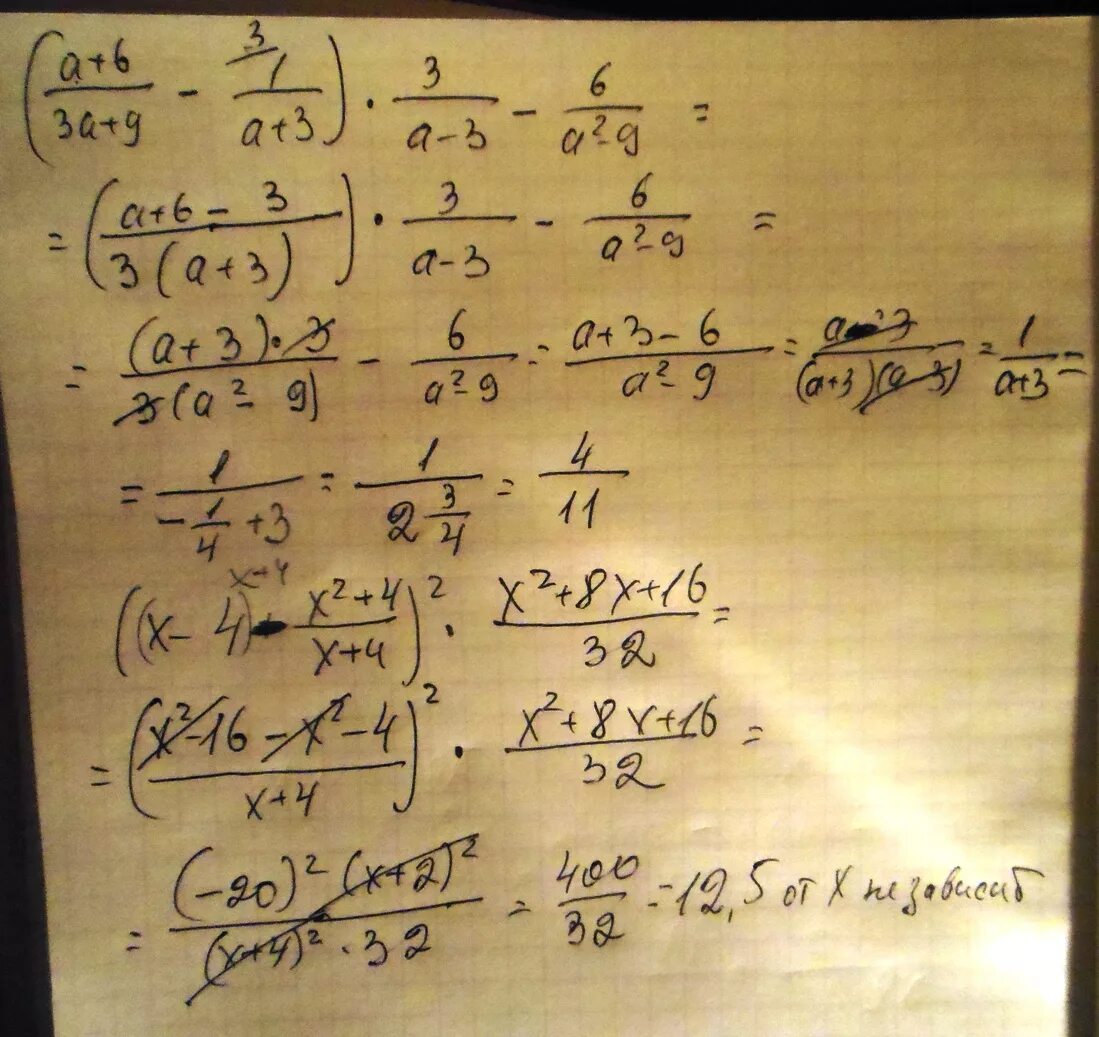 ((a+6)/(3a+9) - 3/ 1/(a+3)) · 3/(a-3) - 6/(a²-9) =
= ((a+6-3)/(3(a+3))) · 3/(a-3) - 6/(a²-9) =
= ((a+3)·3)/(3(a²-9)) - 6/(a²-9) = (a+3-6)/(a²-9) = (a-3)/((a+3)(a-3)) = 1/(a+3) =
= 1/(-1/4+3) = 1/(2 3/4) = 4/11
x+4
((x-4) - (x²+4)/(x+4))² · (x²+8x+16)/32 =
= ((x²-16-x²-4)/(x+4))² · (x²+8x+16)/32 =
= ((-20)²(x+2)²)/((x+4)²·32) = 400/32 = 12,5 от х не зависит